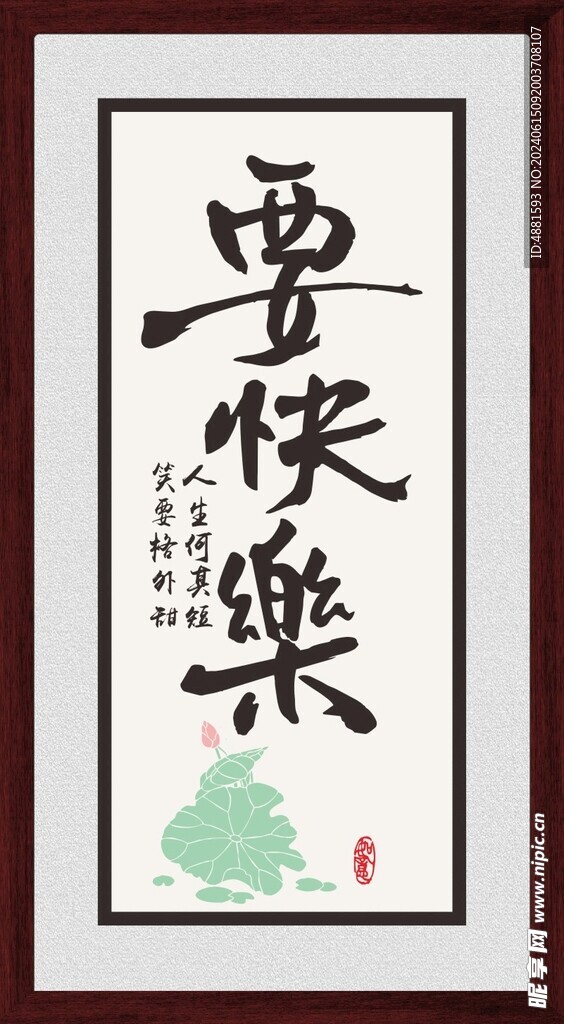 要快樂
人生何其短
笑要格外甜
如意
ID:4881593 NO:20240615092003708107
昵享网 www.nipic.cn